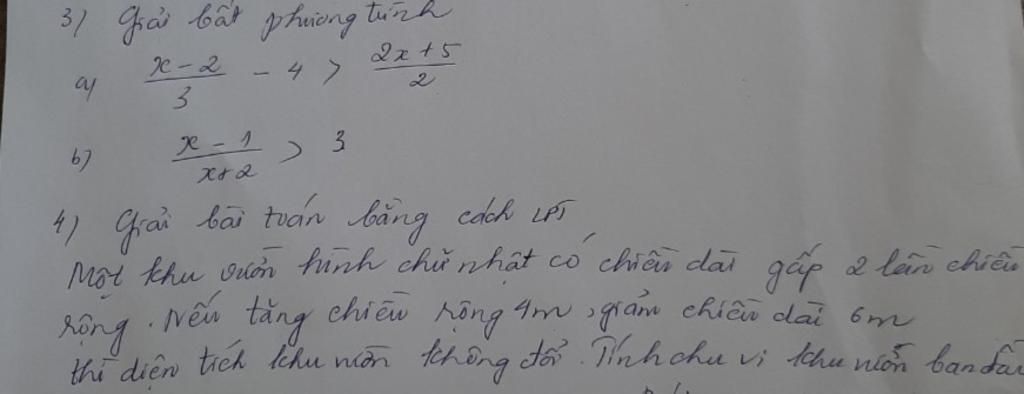 3) Giải bất phương trình
a) \frac{x-2}{3} - 4 > \frac{2x+5}{2}
b) \frac{x-1}{x+2} > 3
4) Giải bài toán bằng cách LPT
Một khu vườn hình chữ nhật có chiều dài gấp 2 lần chiều
rộng. Nếu tăng chiều rộng 4m, giảm chiều dài 6m
thì diện tích khu vườn không đổi. Tính chu vi khu vườn ban đầu